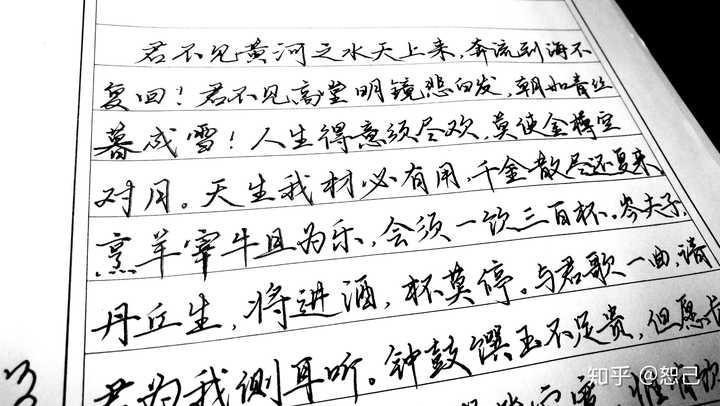 君不见黄河之水天上来，奔流到海不
复回！君不见高堂明镜悲白发，朝如青丝
暮成雪！人生得意须尽欢，莫使金樽空
对月。天生我材必有用，千金散尽还复来，
烹羊宰牛且为乐，会须一饮三百杯。岑夫子，
丹丘生，将进酒，杯莫停。与君歌一曲，请
君为我侧耳听。钟鼓馔玉不足贵，但愿长
知乎 @恕己